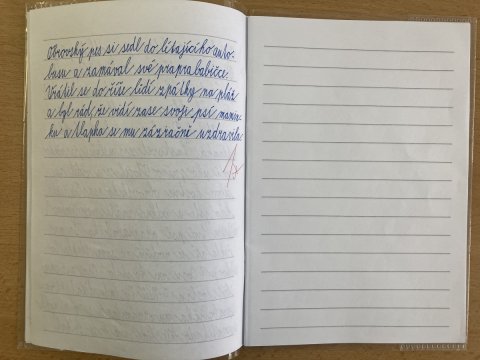 Obrovský pes si sedl do lítajícího auto-
busu a zamával své praprababičce.
Vrátil se do říše lidí zpátky na pláž
a byl rád, že vidí zase svoji psí mamin-
ku a tlapka se mu zázračně uzdravila.